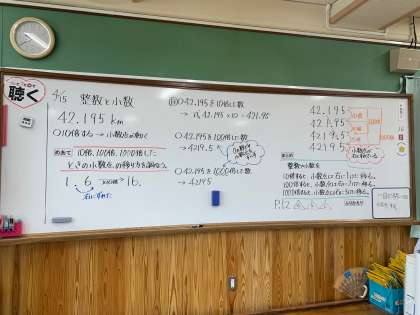 聴く
4/15 整数と小数
42.195 km
○10倍する→小数点が動く
めあて 10倍、100倍、1000倍した
ときの小数点の移り方を調べよう。
1.6 ×10倍> 16.
右に
42.195を10倍した数
→ 42.195×10=421.95
○42.195を100倍した数
→4219.5
○42.195を1000倍した数
→42195
42.195
421.95
4219.5
42195
10倍
10倍
10倍
小数点が
まとめ
整数や小数を
10倍すると、小数点は右に1けた移る。
100倍すると、小数点は右に2けた移る。
1000倍すると、小数点は右に3けた移る。
P.12